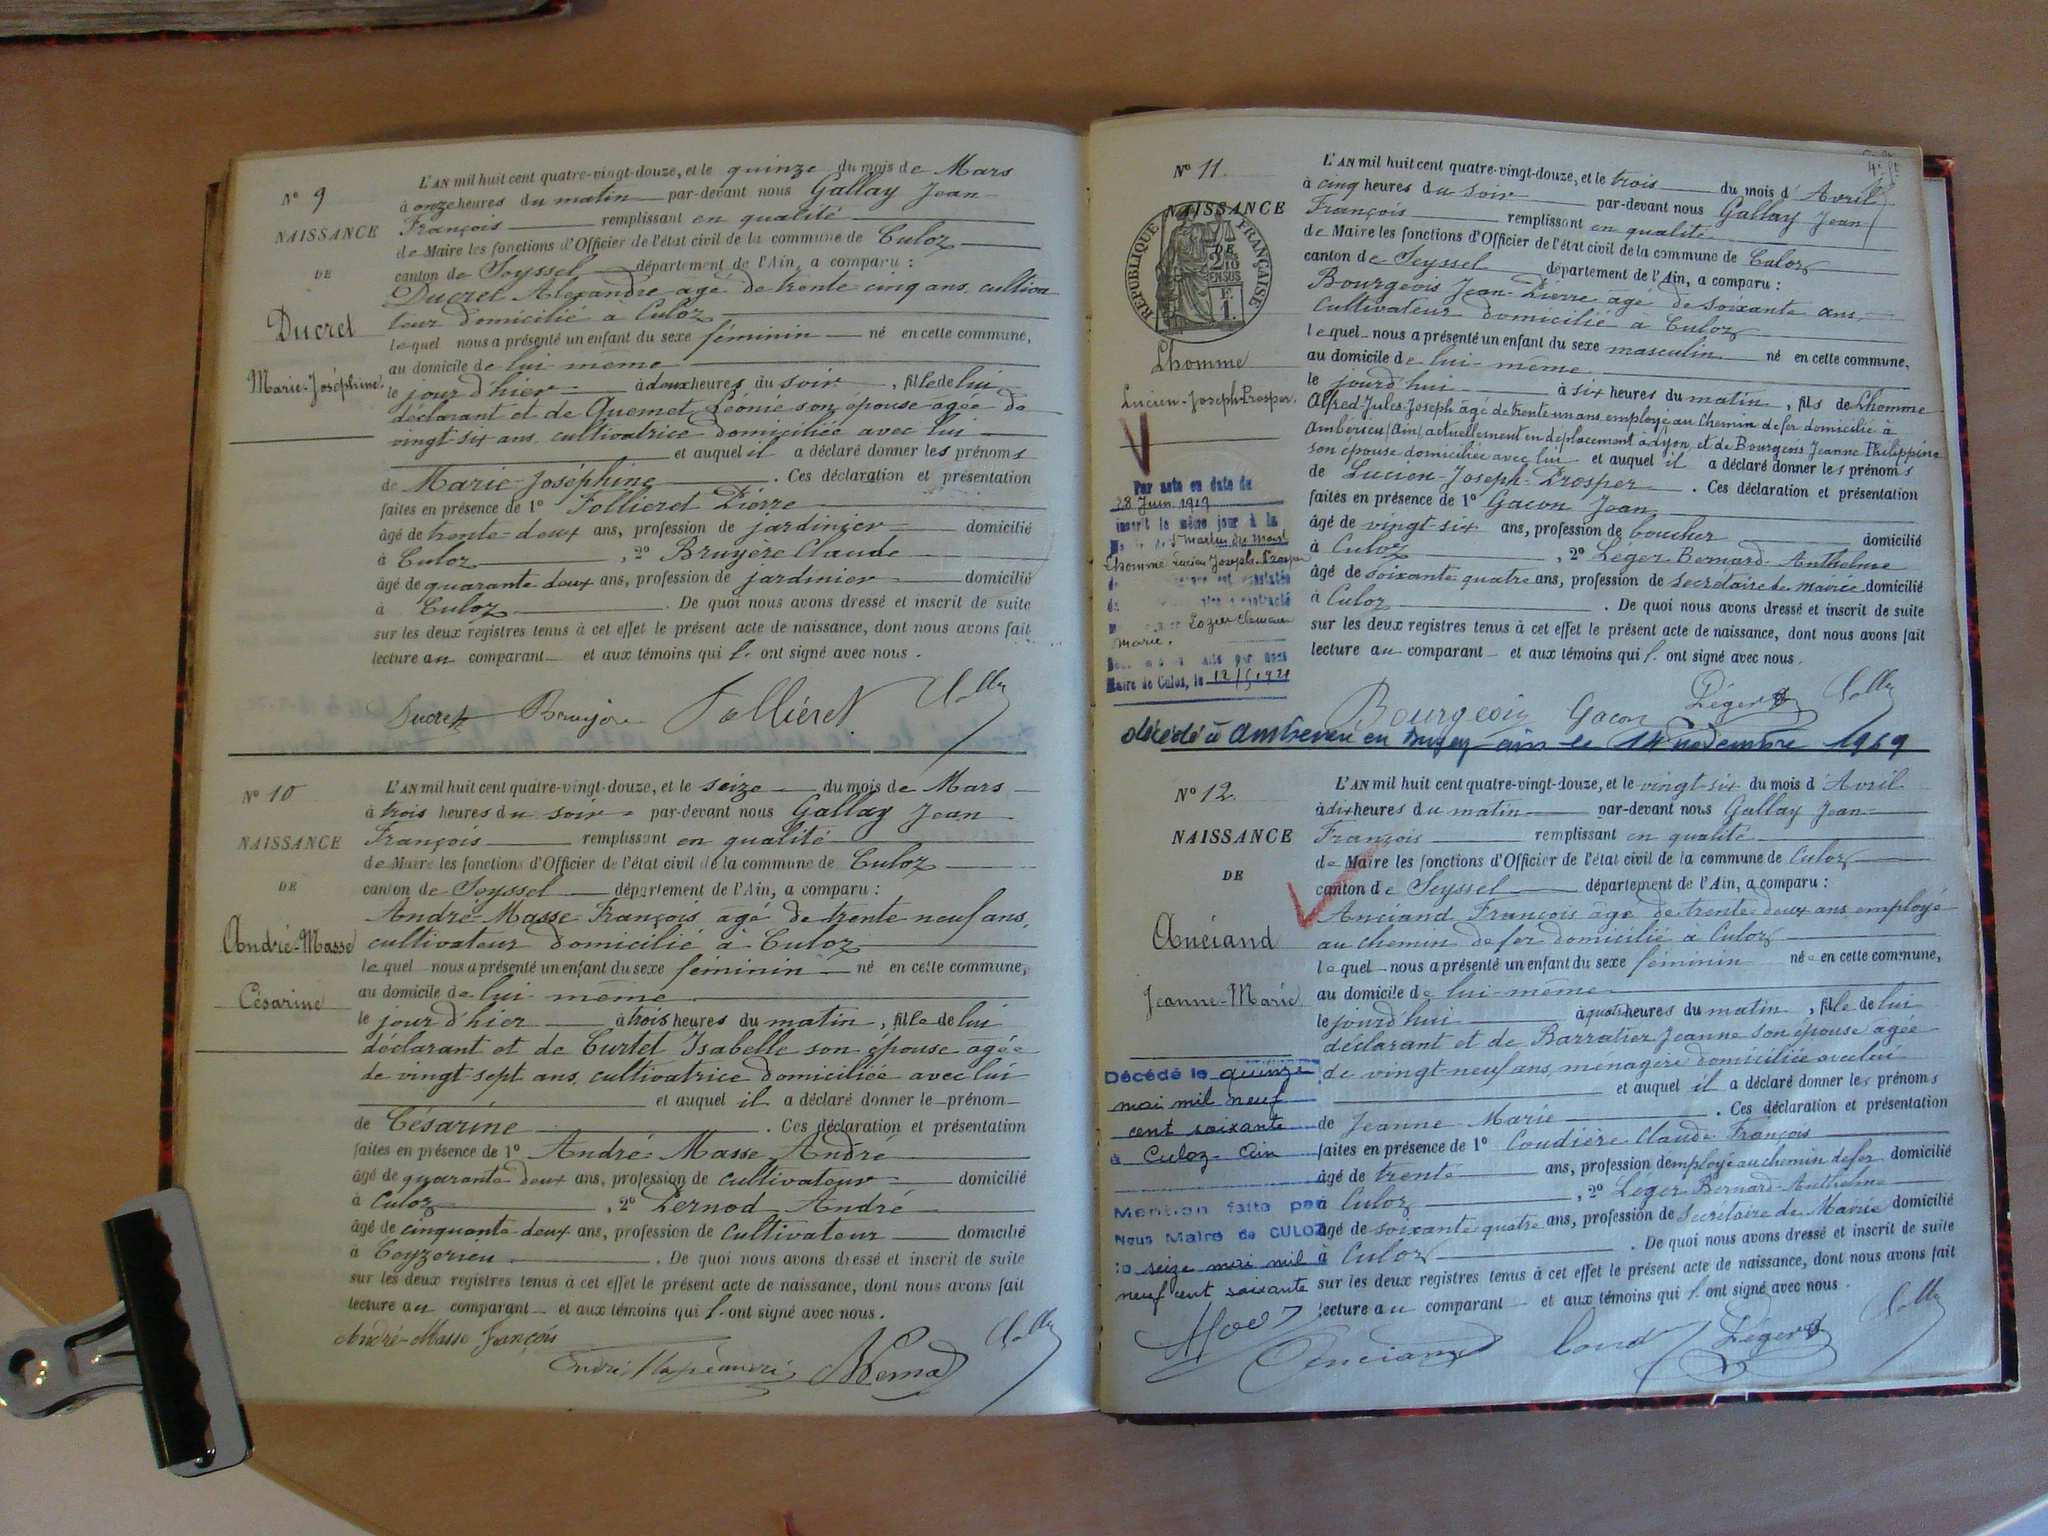 N° 9
NAISSANCE
DE
Ducret
Marie-Joséphine
L'AN mil huit cent quatre-vingt-douze, et le quinze du mois de Mars
à onze heures du matin par-devant nous Gallay Jean
François remplissant en qualité
de Maire les fonctions d'Officier de l'état civil de la commune de Culoz
canton de Seyssel département de l'Ain, a comparu :
Ducret Alexandre âgé de trente cinq ans, cultiva
teur domicilié à Culoz
lequel nous a présenté un enfant du sexe féminin né en cette commune,
au domicile de lui même
le jour d'hier à deux heures du soir, fille de lui
déclarant et de Quemet Léonie son épouse âgée de
vingt six ans, cultivatrice domiciliée avec lui
et auquel il a déclaré donner les prénoms
de Marie-Joséphine. Ces déclaration et présentation
faites en présence de 1° Follieret Pierre
âgé de trente-deux ans, profession de jardinier domicilié
à Culoz, 2° Bruyère Claude
âgé de quarante deux ans, profession de jardinier domicilié
à Culoz. De quoi nous avons dressé et inscrit de suite
sur les deux registres tenus à cet effet le présent acte de naissance, dont nous avons fait
lecture au comparant et aux témoins qui l'ont signé avec nous.
Ducret Bruyère Folliéret
N° 10
NAISSANCE
DE
André-Masse
Césarine
L'AN mil huit cent quatre-vingt-douze, et le seize du mois de Mars
à trois heures du soir par-devant nous Gallay Jean
François remplissant en qualité
de Maire les fonctions d'Officier de l'état civil de la commune de Culoz
canton de Seyssel département de l'Ain, a comparu :
André-Masse François âgé de trente neuf ans,
cultivateur domicilié à Culoz
lequel nous a présenté un enfant du sexe féminin né en cette commune,
au domicile de lui même
le jour d'hier à trois heures du matin, fille de lui
déclarant et de Curtet Isabelle son épouse âgée
de vingt-sept ans, cultivatrice domiciliée avec lui
et auquel il a déclaré donner le prénom
de Césarine. Ces déclaration et présentation
faites en présence de 1° André-Masse André
âgé de quarante deux ans, profession de cultivateur domicilié
à Culoz, 2° Pernod André
âgé de cinquante deux ans, profession de cultivateur domicilié
à Ceyzerieu. De quoi nous avons dressé et inscrit de suite
sur les deux registres tenus à cet effet le présent acte de naissance, dont nous avons fait
lecture au comparant et aux témoins qui l'ont signé avec nous.
André-Masse françois
N° 11
NAISSANCE
RÉPUBLIQUE FRANÇAISE
Lhomme
Lucien-Joseph-Prosper
Par acte en date du
28 Juin 1919
inscrit le même jour à la
Lhomme Lucien Joseph Prosper
Marie.
Maire de Culoz, le
L'AN mil huit cent quatre-vingt-douze, et le trois du mois d'Avril
à cinq heures du soir par-devant nous Gallay Jean
François remplissant en qualité
de Maire les fonctions d'Officier de l'état civil de la commune de Culoz
canton de Seyssel département de l'Ain, a comparu :
Bourgeois Jean-Pierre âgé de soixante ans,
cultivateur domicilié à Culoz
lequel nous a présenté un enfant du sexe masculin né en cette commune,
au domicile de lui-même
le jourd'hui à six heures du matin, fils de Lhomme
Alfred-Jules-Joseph âgé de trente un ans employé au Chemin de fer domicilié à
Ambérieu (Ain) actuellement en déplacement à Lyon, et de Bourgeois Jeanne Philippine
son épouse domiciliée avec lui et auquel il a déclaré donner les prénoms
de Lucien-Joseph-Prosper. Ces déclaration et présentation
faites en présence de 1° Gacon Jean
âgé de vingt-six ans, profession de boucher domicilié
à Culoz, 2° Léger Bernard-Anthelme
âgé de soixante quatre ans, profession de secrétaire de mairie domicilié
à Culoz. De quoi nous avons dressé et inscrit de suite
sur les deux registres tenus à cet effet le présent acte de naissance, dont nous avons fait
lecture au comparant et aux témoins qui l'ont signé avec nous.
Bourgeois Gacon Léger
décédé à Amberieu en Bugey Ain le 14 novembre 1969
N° 12
NAISSANCE
DE
Anciand
Jeanne-Marie
Décédé le quinze
mai mil neuf
cent soixante
à Culoz Ain
Mention faite par
Nous Maire de CULOZ
le seize mai mil
neuf cent soixante
L'AN mil huit cent quatre-vingt-douze, et le vingt-six du mois d'Avril
à dix heures du matin par-devant nous Gallay Jean
François remplissant en qualité
de Maire les fonctions d'Officier de l'état civil de la commune de Culoz
canton de Seyssel département de l'Ain, a comparu :
Anciand François âgé de trente-deux ans employé
au chemin de fer domicilié à Culoz
lequel nous a présenté un enfant du sexe féminin née en cette commune,
au domicile de lui-même
le jourd'hui à quatre heures du matin, fille de lui
déclarant et de Barratier Jeanne son épouse âgée
de vingt-neuf ans, ménagère domiciliée avec lui
et auquel il a déclaré donner les prénoms
de Jeanne-Marie. Ces déclaration et présentation
faites en présence de 1° Coudière Claude François
âgé de trente ans, profession d'employé au chemin de fer domicilié
à Culoz, 2° Léger Bernard-Anthelme
âgé de soixante-quatre ans, profession de secrétaire de Mairie domicilié
à Culoz. De quoi nous avons dressé et inscrit de suite
sur les deux registres tenus à cet effet le présent acte de naissance, dont nous avons fait
lecture au comparant et aux témoins qui l'ont signé avec nous.
Anciand Léger